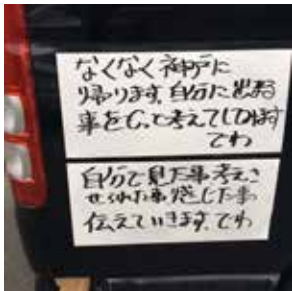 なくなく神戸に
帰ります。自分に出来る
事をC,と考えてしてほす
でわ
自分で見た事考えさ
せられた事感じた事
伝えていきます。でわ